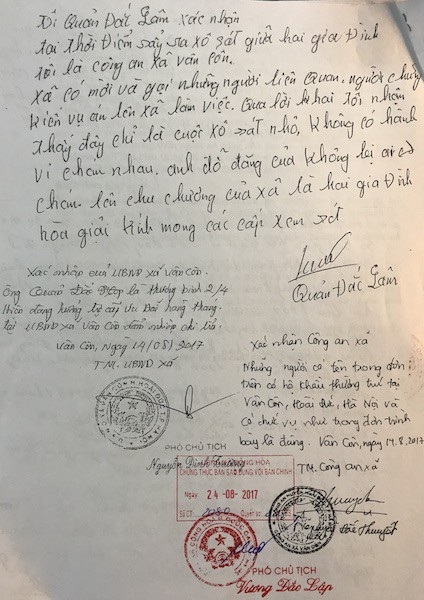 Tôi Quản Đắc Lâm xác nhận
tại thời điểm sảy sa xô sát giữa hai gia Đình
tôi là công an xã vân côn.
xã có mời và gọi những người liên quan. người chứng
kiến vụ an lên xã làm việc. Qua lời khai tôi nhận
thấy đây chỉ là cuộc xô sát nhỏ, không có hành
vi chém nhau. anh đỗ đăng của không bị ai
chém. lên chu chương của xã là hai gia Đình
hòa giải kính mong các cấp xem sét
Quản Đắc Lâm
Xác nhận của UBND xã Vân Côn.
Ông là thương binh 2/4
hiện đang hưởng trợ cấp Ưu Đãi hàng tháng.
tại UBND xã Vân Côn chi trả.
Vân Côn, Ngày 14/08/2017
T.M. UBND xã
PHÓ CHỦ TỊCH
Nguyễn Đình Trường
Xác nhận Công an xã
Những người có tên trong đơn
trên có hộ khẩu thường trú tại
Vân Côn, Hoài Đức, Hà Nội và
có chức vụ như trong đơn trình
bày là đúng. Vân Côn, ngày 14.8.2017
TM. Công an xã
Nguyễn Đắc Thuyết
CHỨNG THỰC BẢN SAO ĐÚNG VỚI BẢN CHÍNH
Ngày 24 -08- 2017
Số CT:
PHÓ CHỦ TỊCH
Vương Đắc Lập